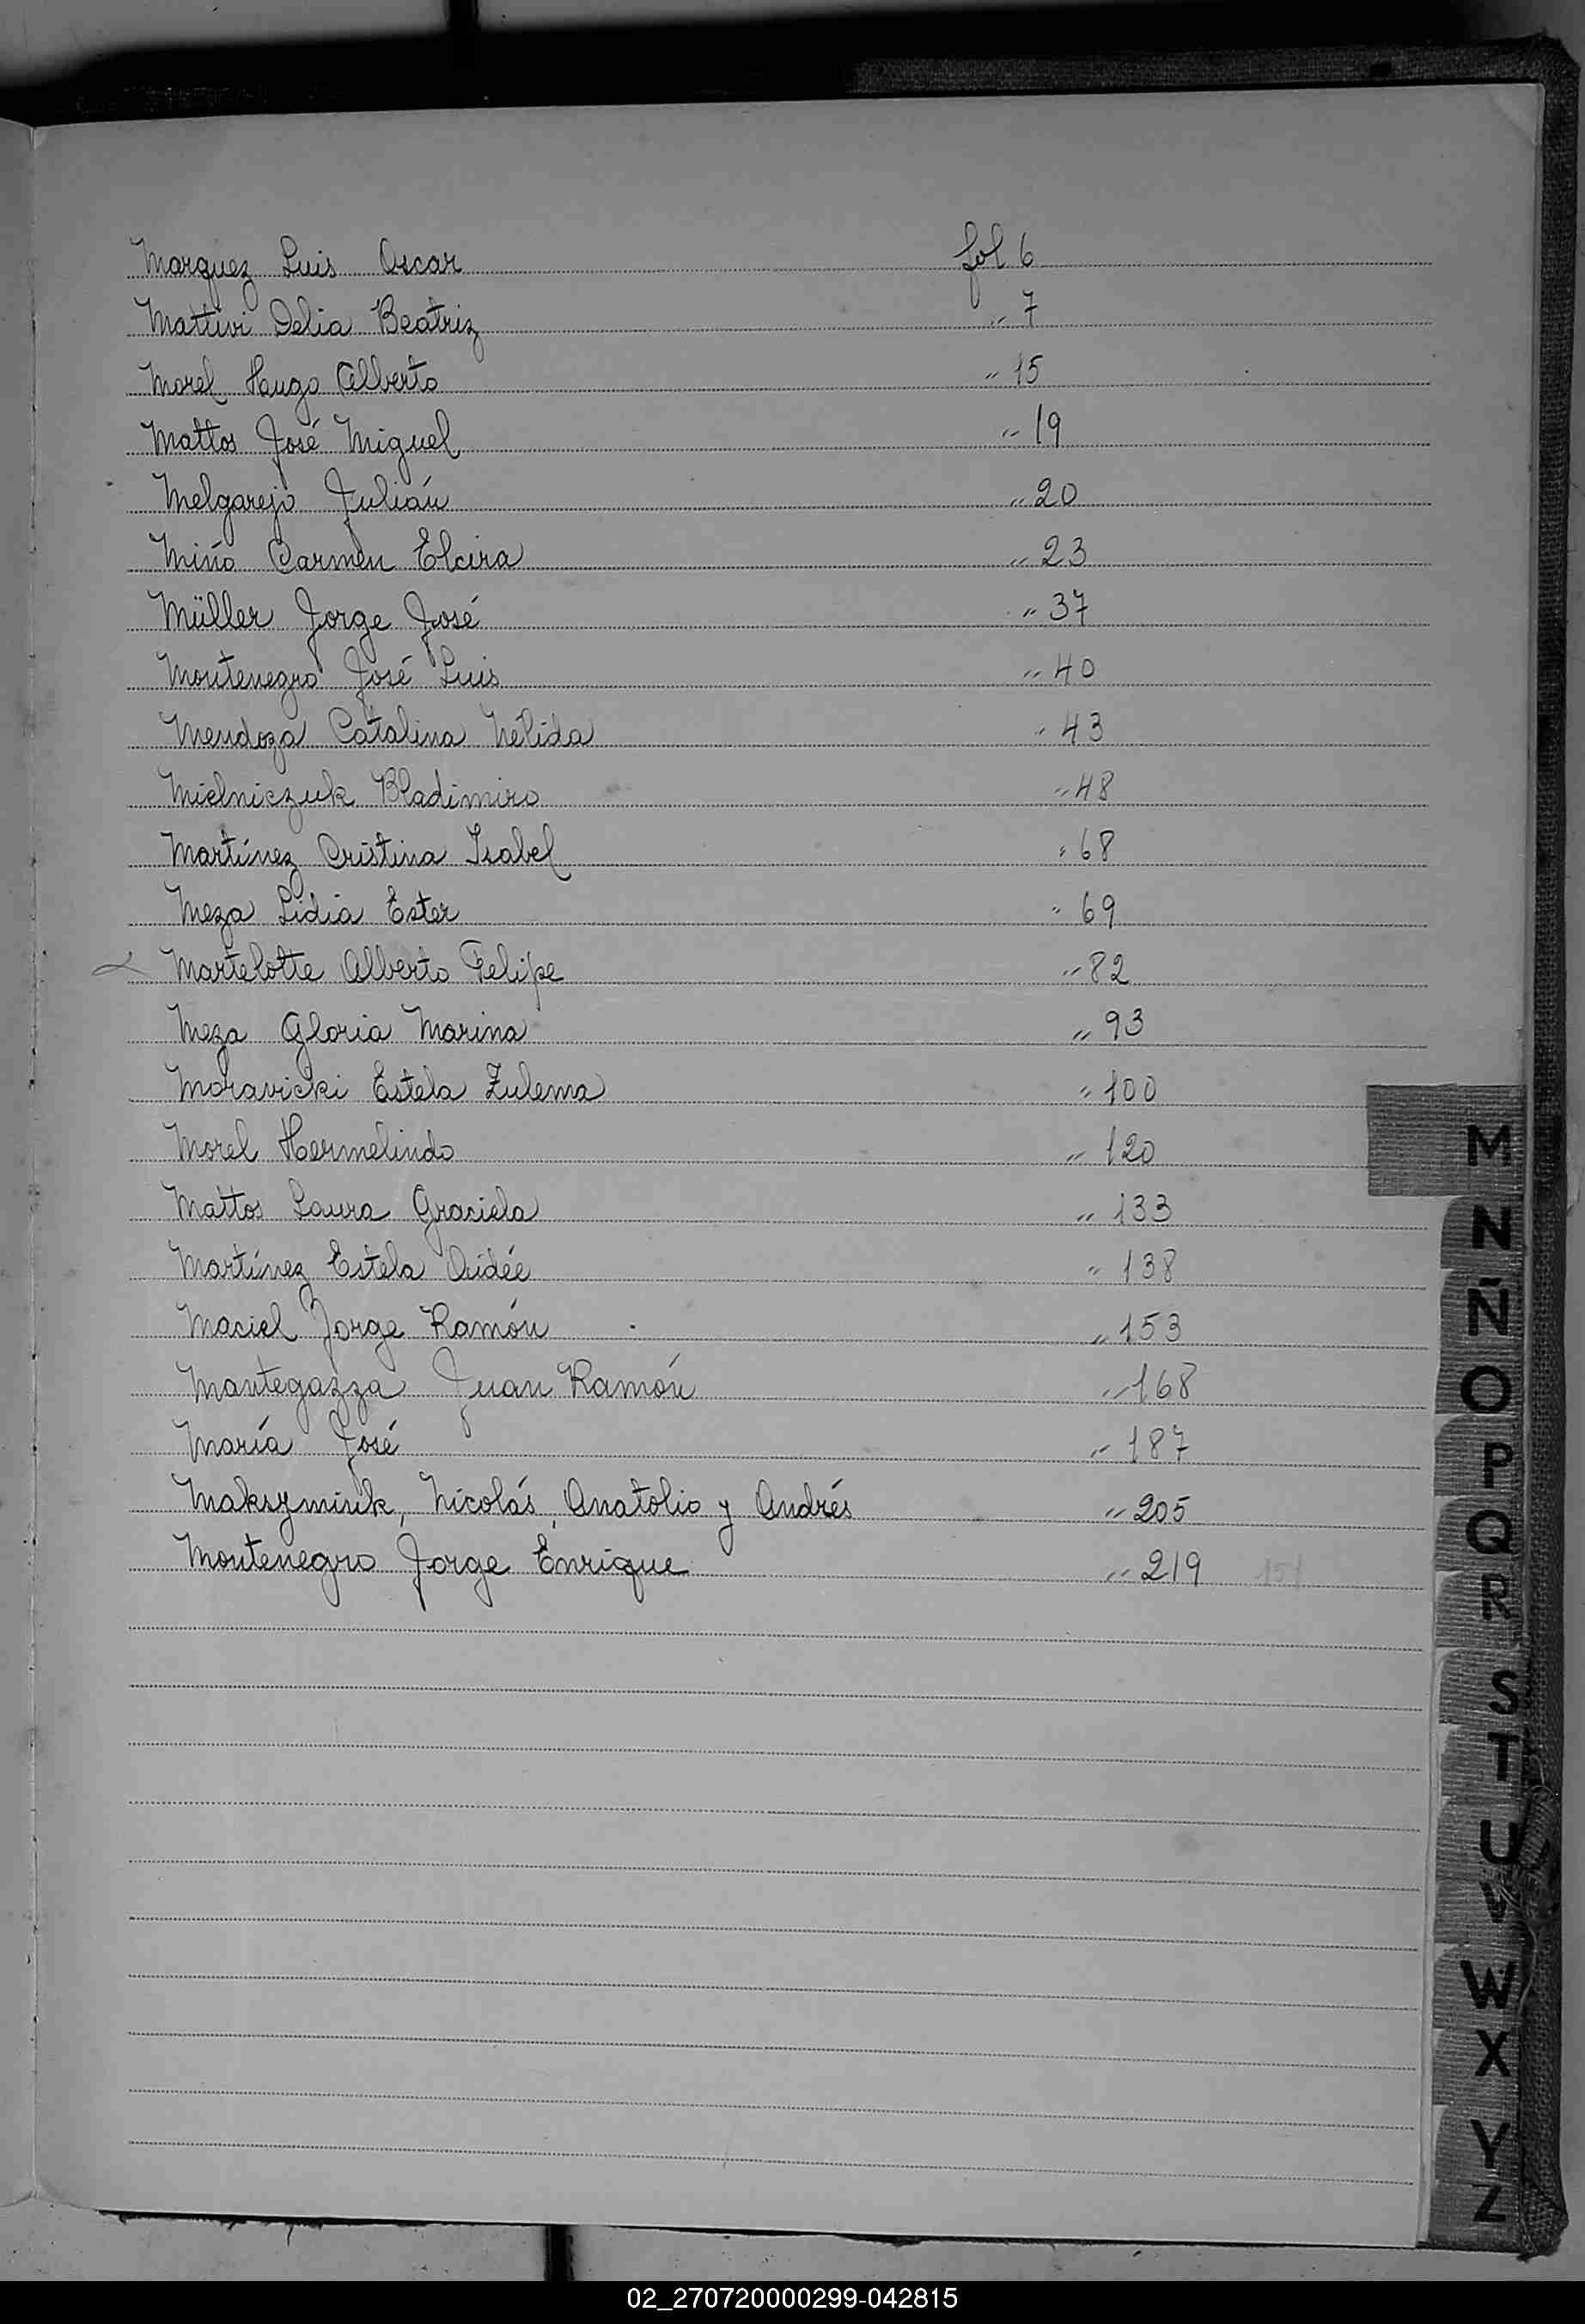 Marquez Luis Oscar fol 6
Mattivi Delia Beatriz " 7
Morel Hugo Alberto " 15
Mattos José Miguel " 19
Melgarejo Julián " 20
Miño Carmen Elcira " 23
Müller Jorge José " 37
Montenegro José Luis " 40
Mendoza Catalina Nélida " 43
Mielniczuk Bladimiro " 48
Martínez Cristina Isabel " 68
Meza Lidia Ester " 69
Martelotte Alberto Felipe " 82
Meza Gloria Marina " 93
Moravicki Estela Zulema " 100
Morel Hermelindo " 120
Mattos Laura Graciela " 133
Martínez Estela Aidée " 138
Maciel Jorge Ramón " 153
Mantegazza Juan Ramón " 168
María José " 187
Maksymiuk, Nicolás, Anatolio y Andrés " 205
Montenegro Jorge Enrique " 219 151
M
N
Ñ
O
P
Q
R
S
T
U
V
W
X
Y
Z
02_270720000299-042815